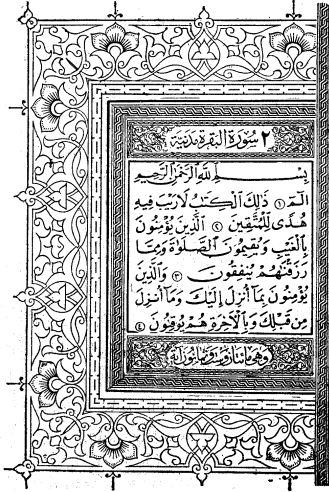 ٢ سورة البقرة مدنية
بِسْمِ اللَّهِ الرَّحْمَٰنِ الرَّحِيمِ
الٓمٓ ١ ذَٰلِكَ الْكِتَٰبُ لَا رَيْبَ فِيهِ
هُدًى لِّلْمُتَّقِينَ ٢ الَّذِينَ يُؤْمِنُونَ
بِالْغَيْبِ وَيُقِيمُونَ الصَّلَوٰةَ وَمِمَّا
رَزَقْنَٰهُمْ يُنفِقُونَ ٣ وَالَّذِينَ
يُؤْمِنُونَ بِمَا أُنزِلَ إِلَيْكَ وَمَا أُنزِلَ
مِن قَبْلِكَ وَبِالْآخِرَةِ هُمْ يُوقِنُونَ ٤
وهى مائتان وست وثمانون آية